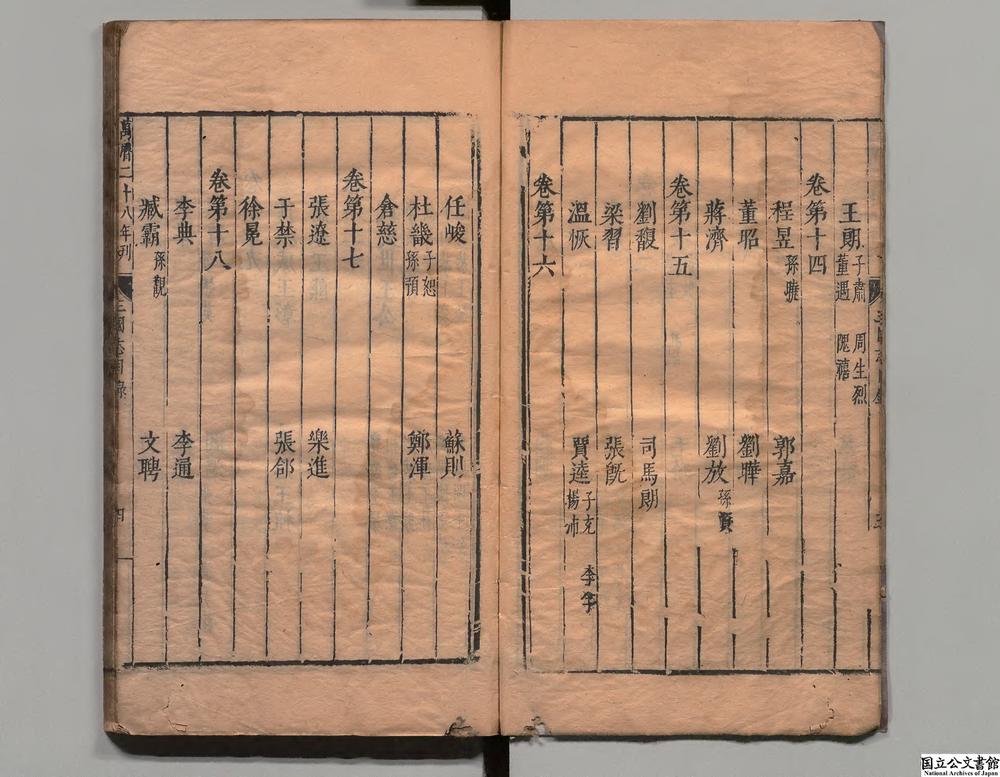 王朗 子肅 董遇 周生烈 隗禧
卷第十四
程昱 孫曉 郭嘉
董昭 劉曄
蔣濟 劉放 孫資
卷第十五
劉馥 司馬朗
梁習 張旣
溫恢 賈逵 子充 楊沛 李孚
卷第十六
任峻 蘇則
杜畿 子恕 孫預 鄭渾
倉慈
卷第十七
張遼 樂進
于禁 張郃
徐晃
卷第十八
李典 李通
臧霸 孫觀 文聘
萬曆二十八年刊 三國志目錄 四
国立公文書館
National Archives of Japan